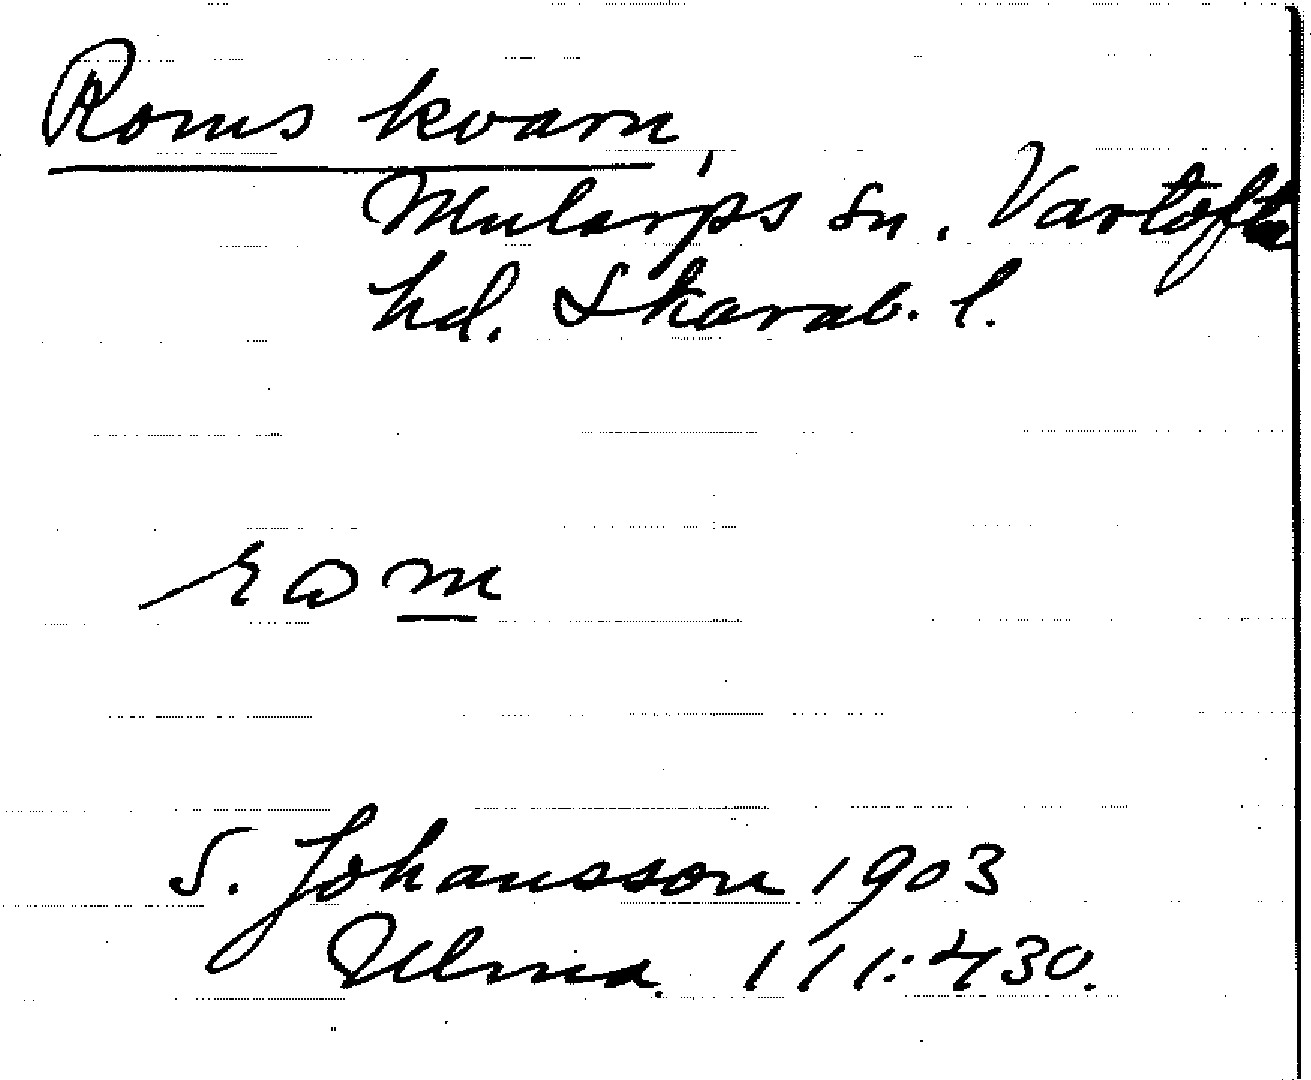 Roms kvarn,
Mularps sn. Vartofta
hd. Skarab. l.
S. Johansson 1903
Ulma. 111:430.